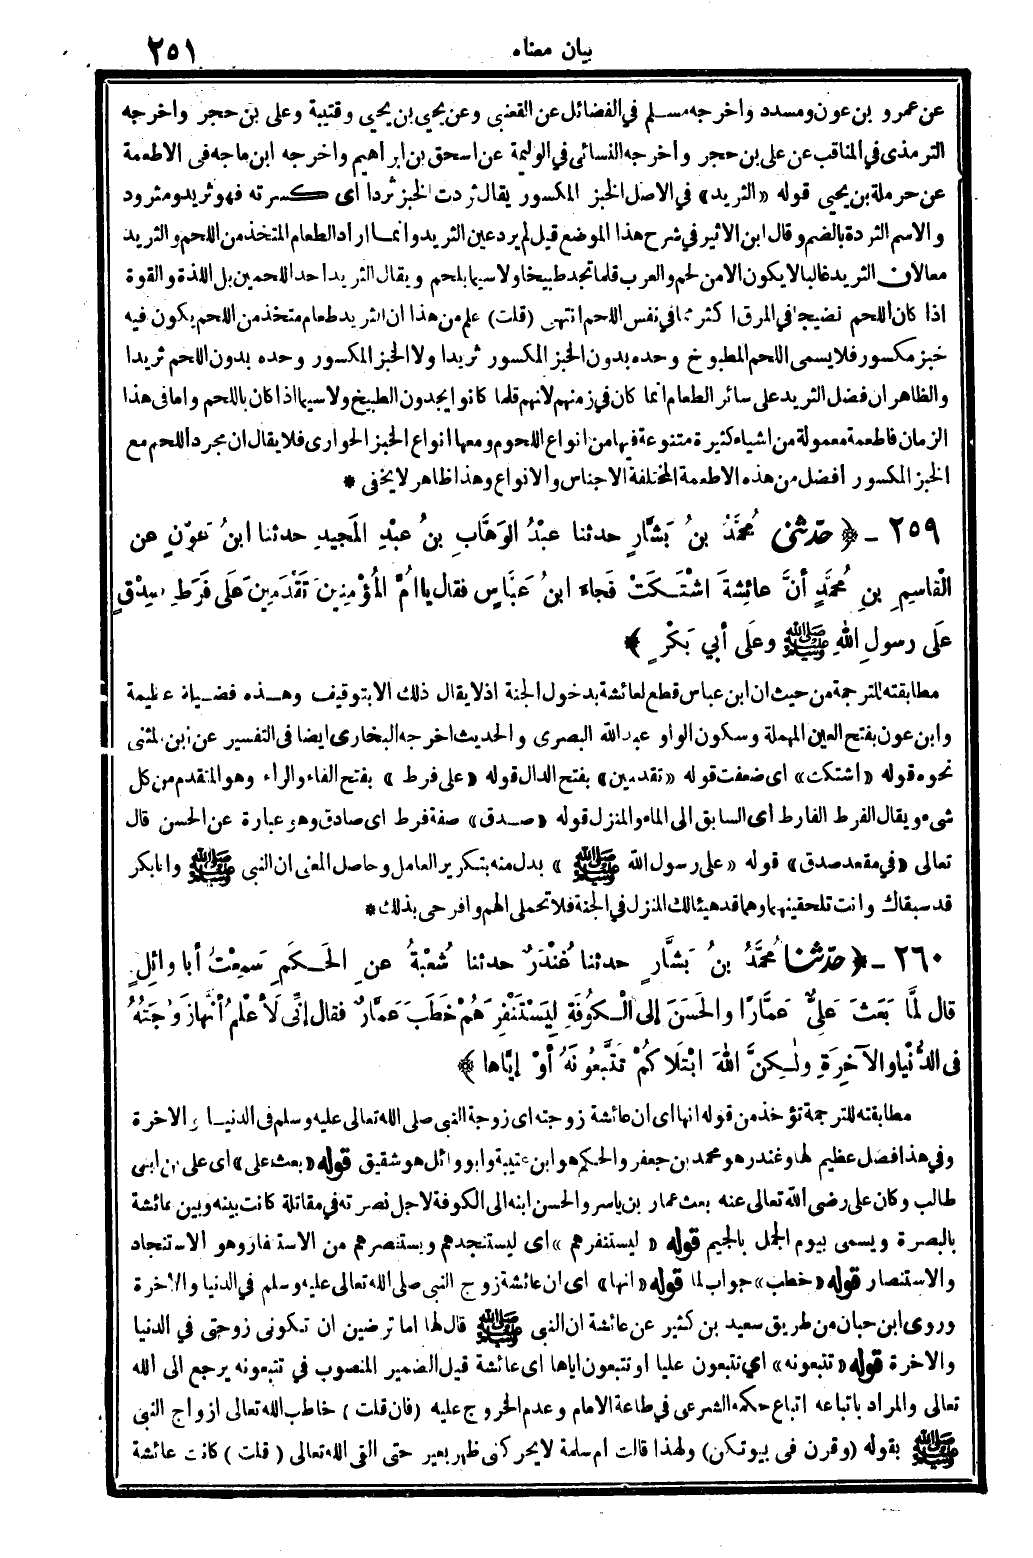 بيان معناه
٢٥١
عن عمرو بن عون ومسدد واخرجه مسلم في الفضائل عن القعنبي وعن يحيى بن يحيى وقتيبة وعلى بن حجر واخرجه
الترمذى في المناقب عن على بن حجر وأخرجه النسائى في الوليمة عن اسحق بن ابراهيم واخرجه ابن ماجه فى الاطعمة
عن حرملة بن يحيى قوله «الثريد» في الاصل الخبز المكسور يقال ثردت الخبز ثردا اى كسرته فهو ثريد ومثرود
والاسم الثردة بالضم وقال ابن الاثير في شرح هذا الموضع قيل لم يرد عين الثريد وانما اراد الطعام المتخذ من اللحم والثريد
معا لان الثريد غالبا لا يكون الا من لحم والعرب قلما تجد طبيخا ولا سيما بلحم ويقال الثريد احد اللحمين بل اللذة والقوة
اذا كان اللحم نضيجا في المرق اكثر مما في نفس اللحم انتهى (قلت) علم من هذا ان الثريد طعام متخذ من اللحم يكون فيه
خبز مكسور فلا يسمى اللحم المطبوخ وحده بدون الخبز المكسور ثريدا ولا الخبز المكسور وحده بدون اللحم ثريدا
والظاهر ان فضل الثريد على سائر الطعام انما كان في زمنهم لانهم قلما كانوا يجدون الطبيخ ولا سيما اذا كان باللحم واما فى هذا
الزمان فاطعمة معمولة من اشياء كثيرة متنوعة فيها من انواع اللحوم ومعها انواع الخبز الحوارى فلا يقال ان مجرد اللحم مع
الخبز المكسور افضل من هذه الاطعمة المختلفة الاجناس والانواع وهذا ظاهر لا يخفى *
٢٥٩ - ﴿ حَدّثنى مُحَمَّدُ بنُ بَشَّارٍ حدثنا عبْدُ الوَهَّابِ بنُ عبْدِ المَجيدِ حدثنا ابنُ عَوْنٍ عن
الْقاسِمِ بنِ مُحَمَّدٍ أنَّ عائِشةَ اشْتَـكَتْ فَجاءَ ابنُ عَبَّاسٍ فقال يا أمَّ المُؤْمِنِينَ تَقْدَمِينَ عَلى فَرَطِ صِدْقٍ
علَى رسولِ اللهِ ﷺ وعلَى أبي بَكْرٍ ﴾
مطابقته للترجمة من حيث ان ابن عباس قطع لعائشة بدخول الجنة اذ لا يقال ذلك الا بتوقيف وهذه فضيلة عظيمة
وابن عون بفتح العين المهملة وسكون الواو عبد الله البصرى والحديث اخرجه البخارى ايضا فى التفسير عن ابن المثنى
نحوه قوله «اشتكت» اى ضعفت قوله «تقدمين» بفتح الدال قوله «على فرط» بفتح الفاء والراء وهو المتقدم من كل
شىء ويقال الفرط الفارط أى السابق الى الماء والمنزل قوله «صدق» صفة فرط اى صادق وهو عبارة عن الحسن قال
تعالى «في مقعد صدق» قوله «على رسول الله ﷺ» بدل منه بتكرير العامل وحاصل المعنى ان النبى ﷺ وابابكر
قد سبقاك وانت تلحقينهما وهما قد هيئا لك المنزل في الجنة فلا تحملى الهم وافرحى بذلك *
٢٦٠ - ﴿ حَدّثنا مُحَمَّدُ بنُ بَشَّارٍ حدثنا غُنْدَرٌ حدثنا شُعْبَةُ عنِ الحَـكَمِ سَمِعْتُ أبا وائِلٍ
قال لمَّا بَعَثَ عَلِيٌّ عَمَّارًا والحَسَنَ إلى الْـكُوفَةِ لِيَسْتَنْفِرَهُمْ خَطَبَ عَمَّارٌ فقال إنِّى لَأعْلَمُ أنَّها زَوْجَتُهُ
فى الدُّنْيا والآخِرَةِ ولٰـكِنَّ اللهَ ابْتَلاكُمْ تَتَّبِعُونَهُ أوْ إيَّاها ﴾
مطابقته للترجمة تؤخذ من قوله انها اى ان عائشة زوجته اى زوجة النبى صلى الله تعالى عليه وسلم فى الدنيا والاخرة
وفي هذا فضل عظيم لها وغندر هو محمد بن جعفر والحكم هو ابن عتيبة وابو وائل هو شقيق قوله «بعث على» اى على بن ابى
طالب وكان على رضى الله تعالى عنه بعث عمار بن ياسر والحسن ابنه الى الكوفة لاجل نصرته في مقاتلة كانت بينه وبين عائشة
بالبصرة ويسمى بيوم الجمل بالجيم قوله «ليستنفرهم» اى ليستنجدهم ويستنصرهم من الاستنفار وهو الاستنجاد
والاستنصار قوله «خطب» جواب لما قوله «انها» اى ان عائشة زوج النبى صلى الله تعالى عليه وسلم في الدنيا والاخرة
وروى ابن حبان من طريق سعيد بن كثير عن عائشة ان النبى ﷺ قال لها اما ترضين ان تكونى زوجتى في الدنيا
والاخرة قوله «تتبعونه» اي تتبعون عليا او تتبعون اياها اى عائشة قيل الضمير المنصوب في تتبعونه يرجع الى الله
تعالى والمراد باتباعه اتباع حكمه الشرعى في طاعة الامام وعدم الخروج عليه (فان قلت) خاطب الله تعالى ازواج النبى
ﷺ بقوله (وقرن فى بيوتكن) ولهذا قالت ام سلمة لا يحركنى ظهر بعير حتى القى الله تعالى (قلت) كانت عائشة